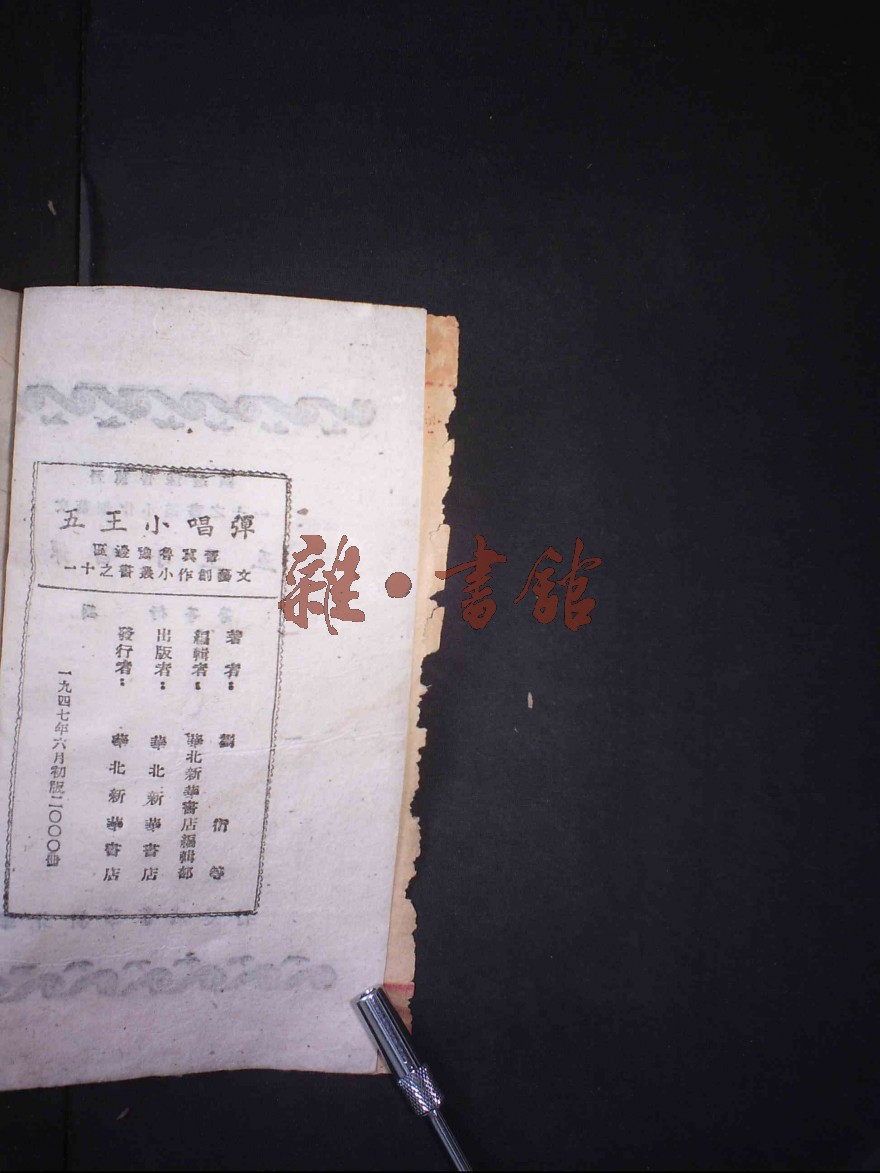 彈唱小王五
晋冀魯豫邊區
文藝創作小叢書之十一
著者：劉衍等
編輯者：華北新華書店編輯部
出版者：華北新華書店
發行者：華北新華書店
一九四七年六月初版二〇〇〇冊
雜·書館